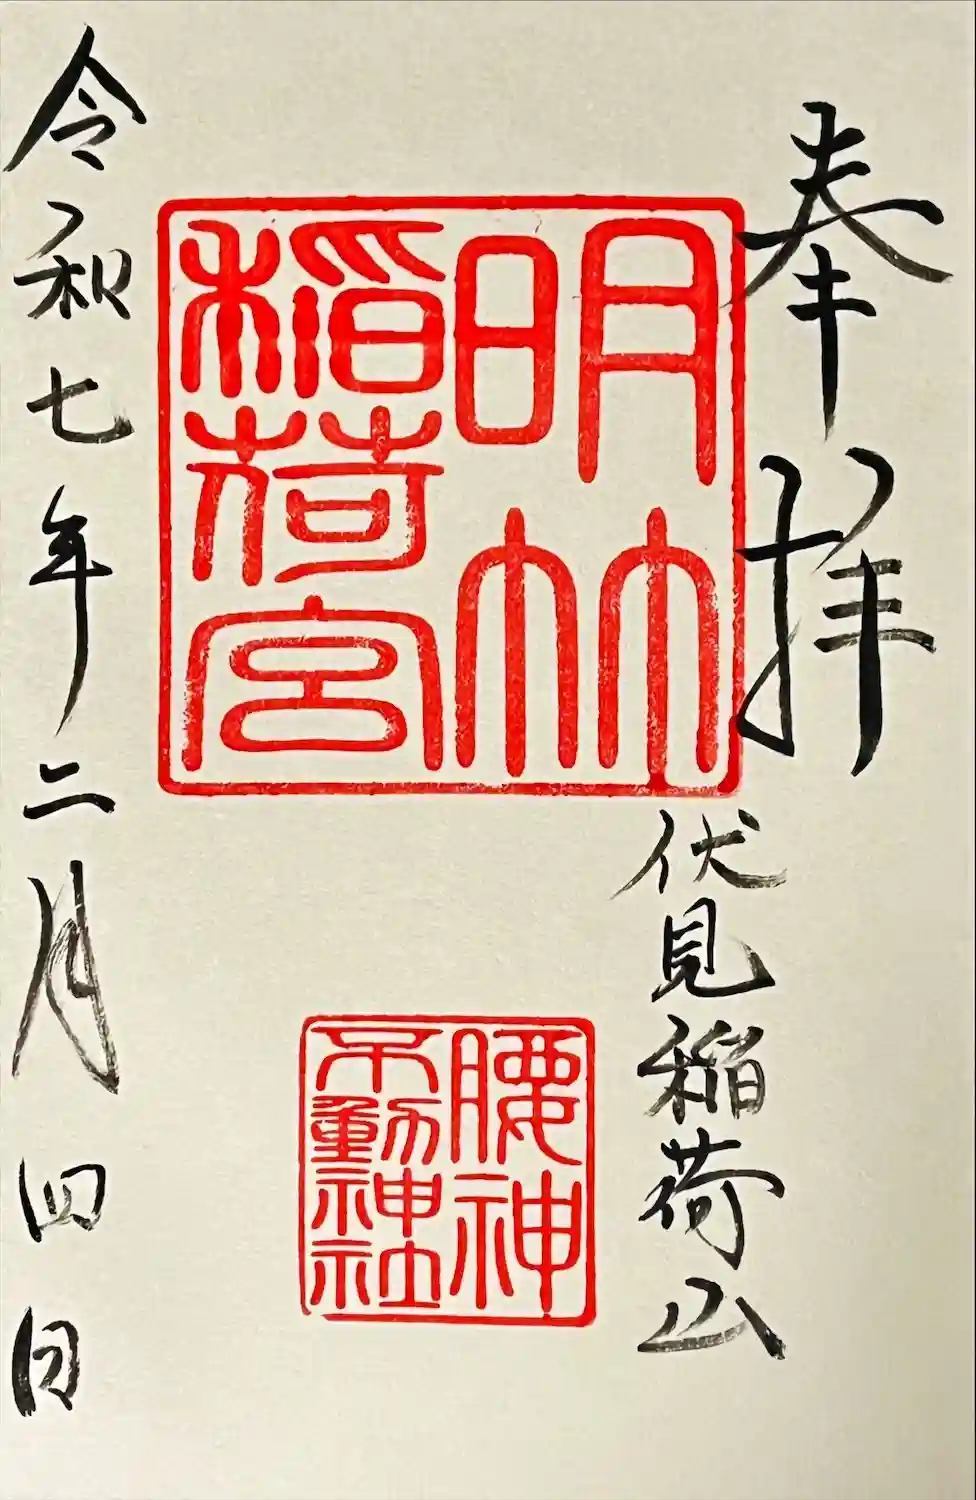 奉拝
伏見稲荷山
明竹
稲荷宮
腰神
不動神社
令和七年二月四日